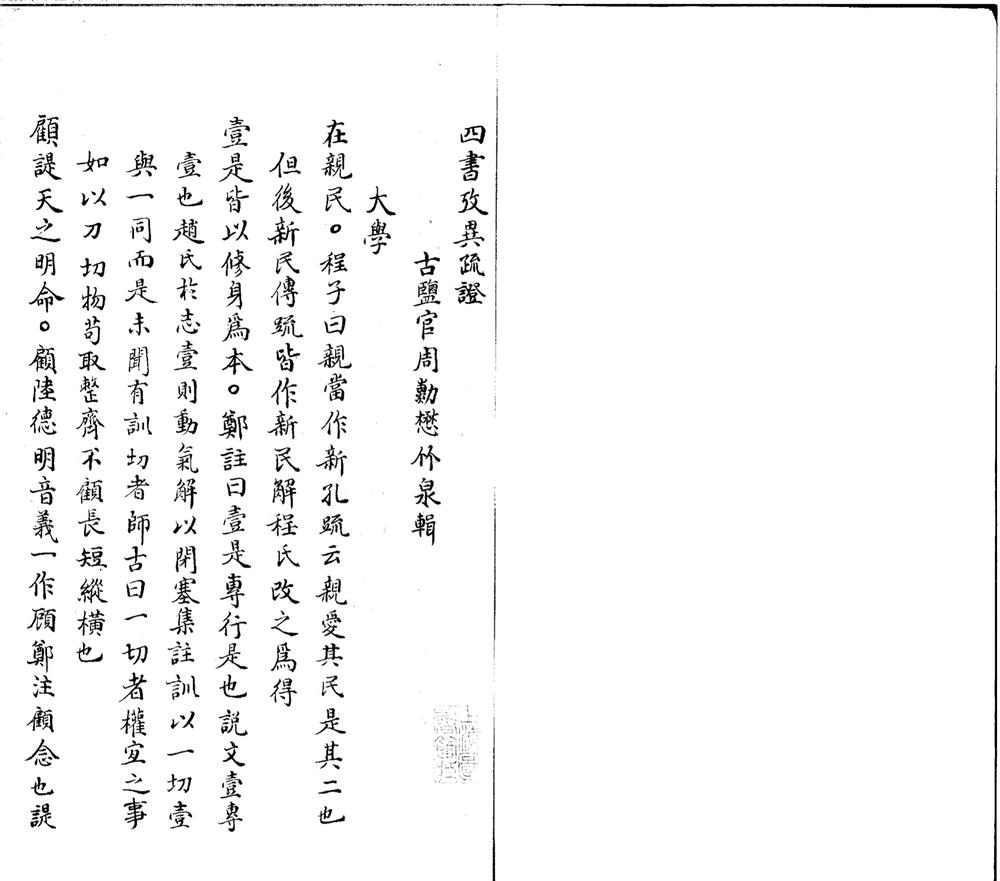 四書攷異疏證
古鹽官周勳懋竹泉輯
大學
在親民。程子曰親當作新孔䟽云親愛其民是其二也
但後新民傳䟽皆作新民解程氏改之爲得
壹是皆以修身爲本。鄭註曰壹是專行是也説文壹專
壹也趙氏於志壹則動氣解以閉塞集註訓以一切壹
與一同而是未聞有訓切者師古曰一切者權宜之事
如以刀切物苟取整齊不顧長短縱橫也
顧諟天之明命。顧陸德明音義一作顾鄭注顧念也諟